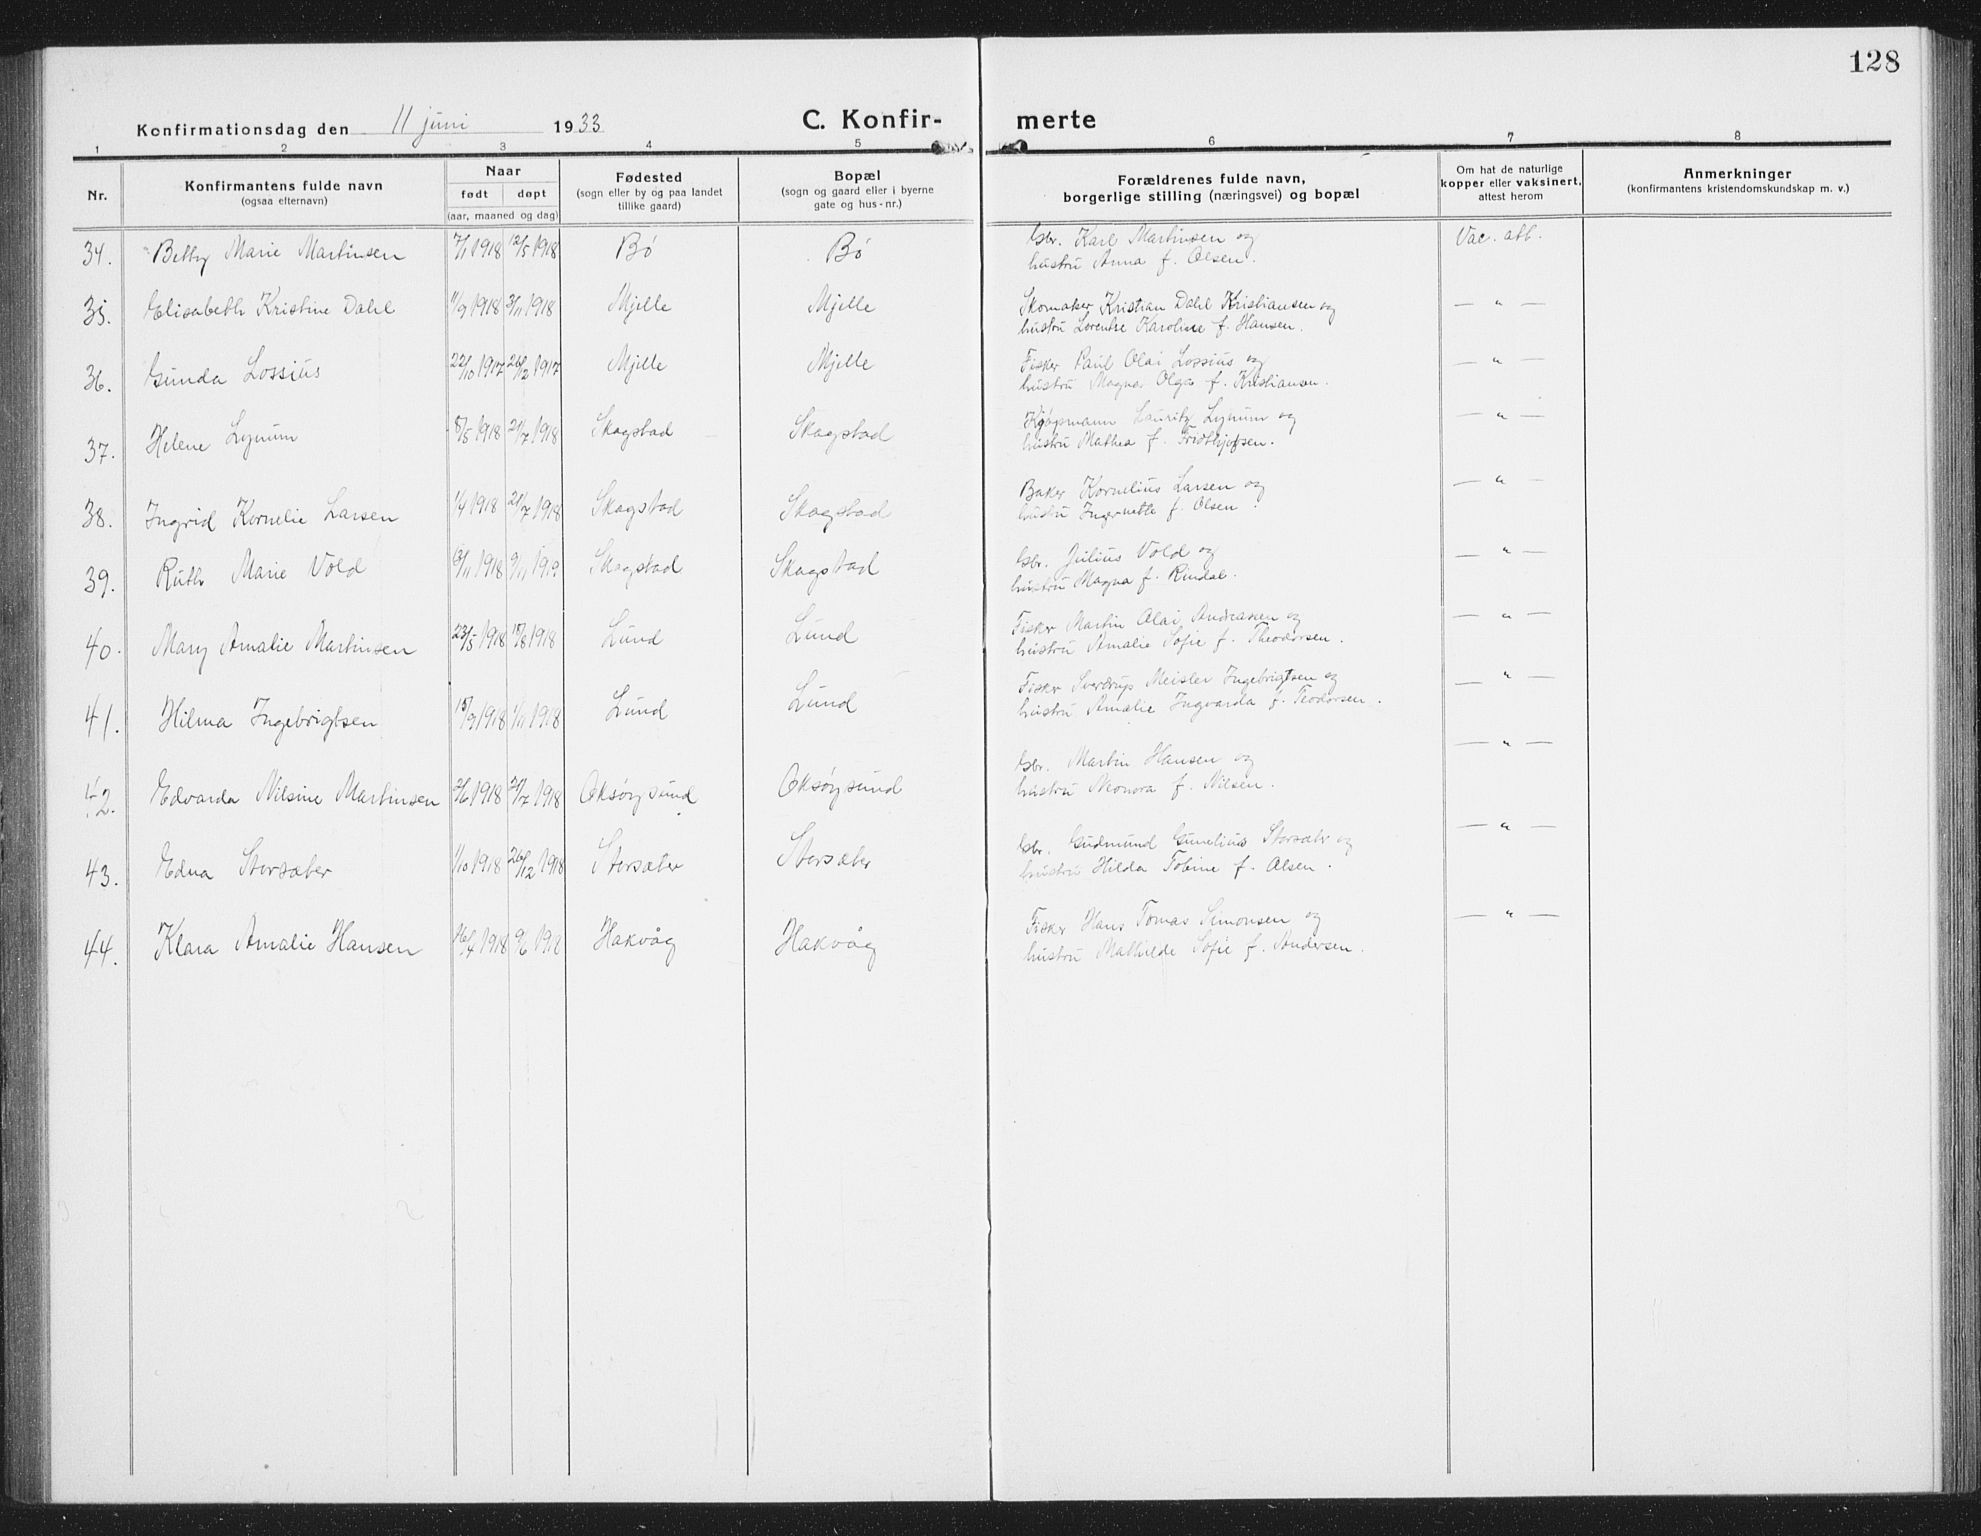 128
Konfirmationsdag den 11 juni 1933 C. Konfir- merte
1 2 3 4 5 6 7 8
Nr. Konfirmantens fulde navn (ogsaa efternavn) Naar født døpt (aar, maaned og dag) Fødested (sogn eller by og paa landet tillike gaard) Bopæl (sogn og gaard eller i byerne gate og hus-nr.) Forældrenes fulde navn, borgerlige stilling (næringsvei) og bopæl Om hat de naturlige kopper eller vaksinert, attest herom Anmerkninger (konfirmantens kristendomskundskap m. v.)
34. Betty Marie Martinsen 7/1 1918 12/5 1918 Bø Bø Gbr. Karl Martinsen og Vac. att.
hustru Anna f. Olsen.
35. Elisabeth Kristine Dahl 11/9 1918 3/11 1918 Mjelle Mjelle Skomaker Kristian Dahl Kristiansen og — " —
hustru Lorentse Karoline f. Hansen.
36. Gunda Lossius 22/10 1917 26/12 1917 Mjelle Mjelle Fisker Paul Olai Lossius og — " —
hustru Magna Olga f. Kristiansen.
37. Helene Lynum 1918 21/7 1918 Skagstad Skagstad Kjøpmann Lauritz Lynum og — " —
hustru Mathea f.
38. Ingrid Kornelie Larsen 1/4 1918 21/7 1918 Skagstad Skagstad Baker Kornelius Larsen og — " —
hustru Ingernette f. Olsen.
39. Ruth Marie Vold 1918 Skagstad Skagstad Gbr. Julius Vold og — " —
hustru Magna f. Rindal.
40. Mary Amalie Martinsen 23/5 1918 18/8 1918 Lund Lund Fisker Martin Olai Andreasen og — " —
hustru Amalie Sofie f. Theodorsen.
41. Hilma Ingebrigtsen 1918 1/11 1918 Lund Lund Fisker Sverdrup Meisler Ingebrigtsen og — " —
hustru Amalie Ingvarda f. Teodorsen.
42. Edvarda Nilsine Martinsen 2/6 1918 21/7 1918 Oksøysund Oksøysund Gbr. Martin Hansen og — " —
hustru Neonora f. Nilsen.
43. Edna Storsæter 1/10 1918 26/12 1918 Storsæter Storsæter Gbr. Gudmund Gunelius Storsæter og — " —
hustru Hilda Tobine f. Olsen.
44. Klara Amalie Hansen 16/4 1918 9/6 Hakvåg Hakvåg Fisker Hans Tomas Simonsen og — " —
hustru Mathilde Sofie f. Andersen.